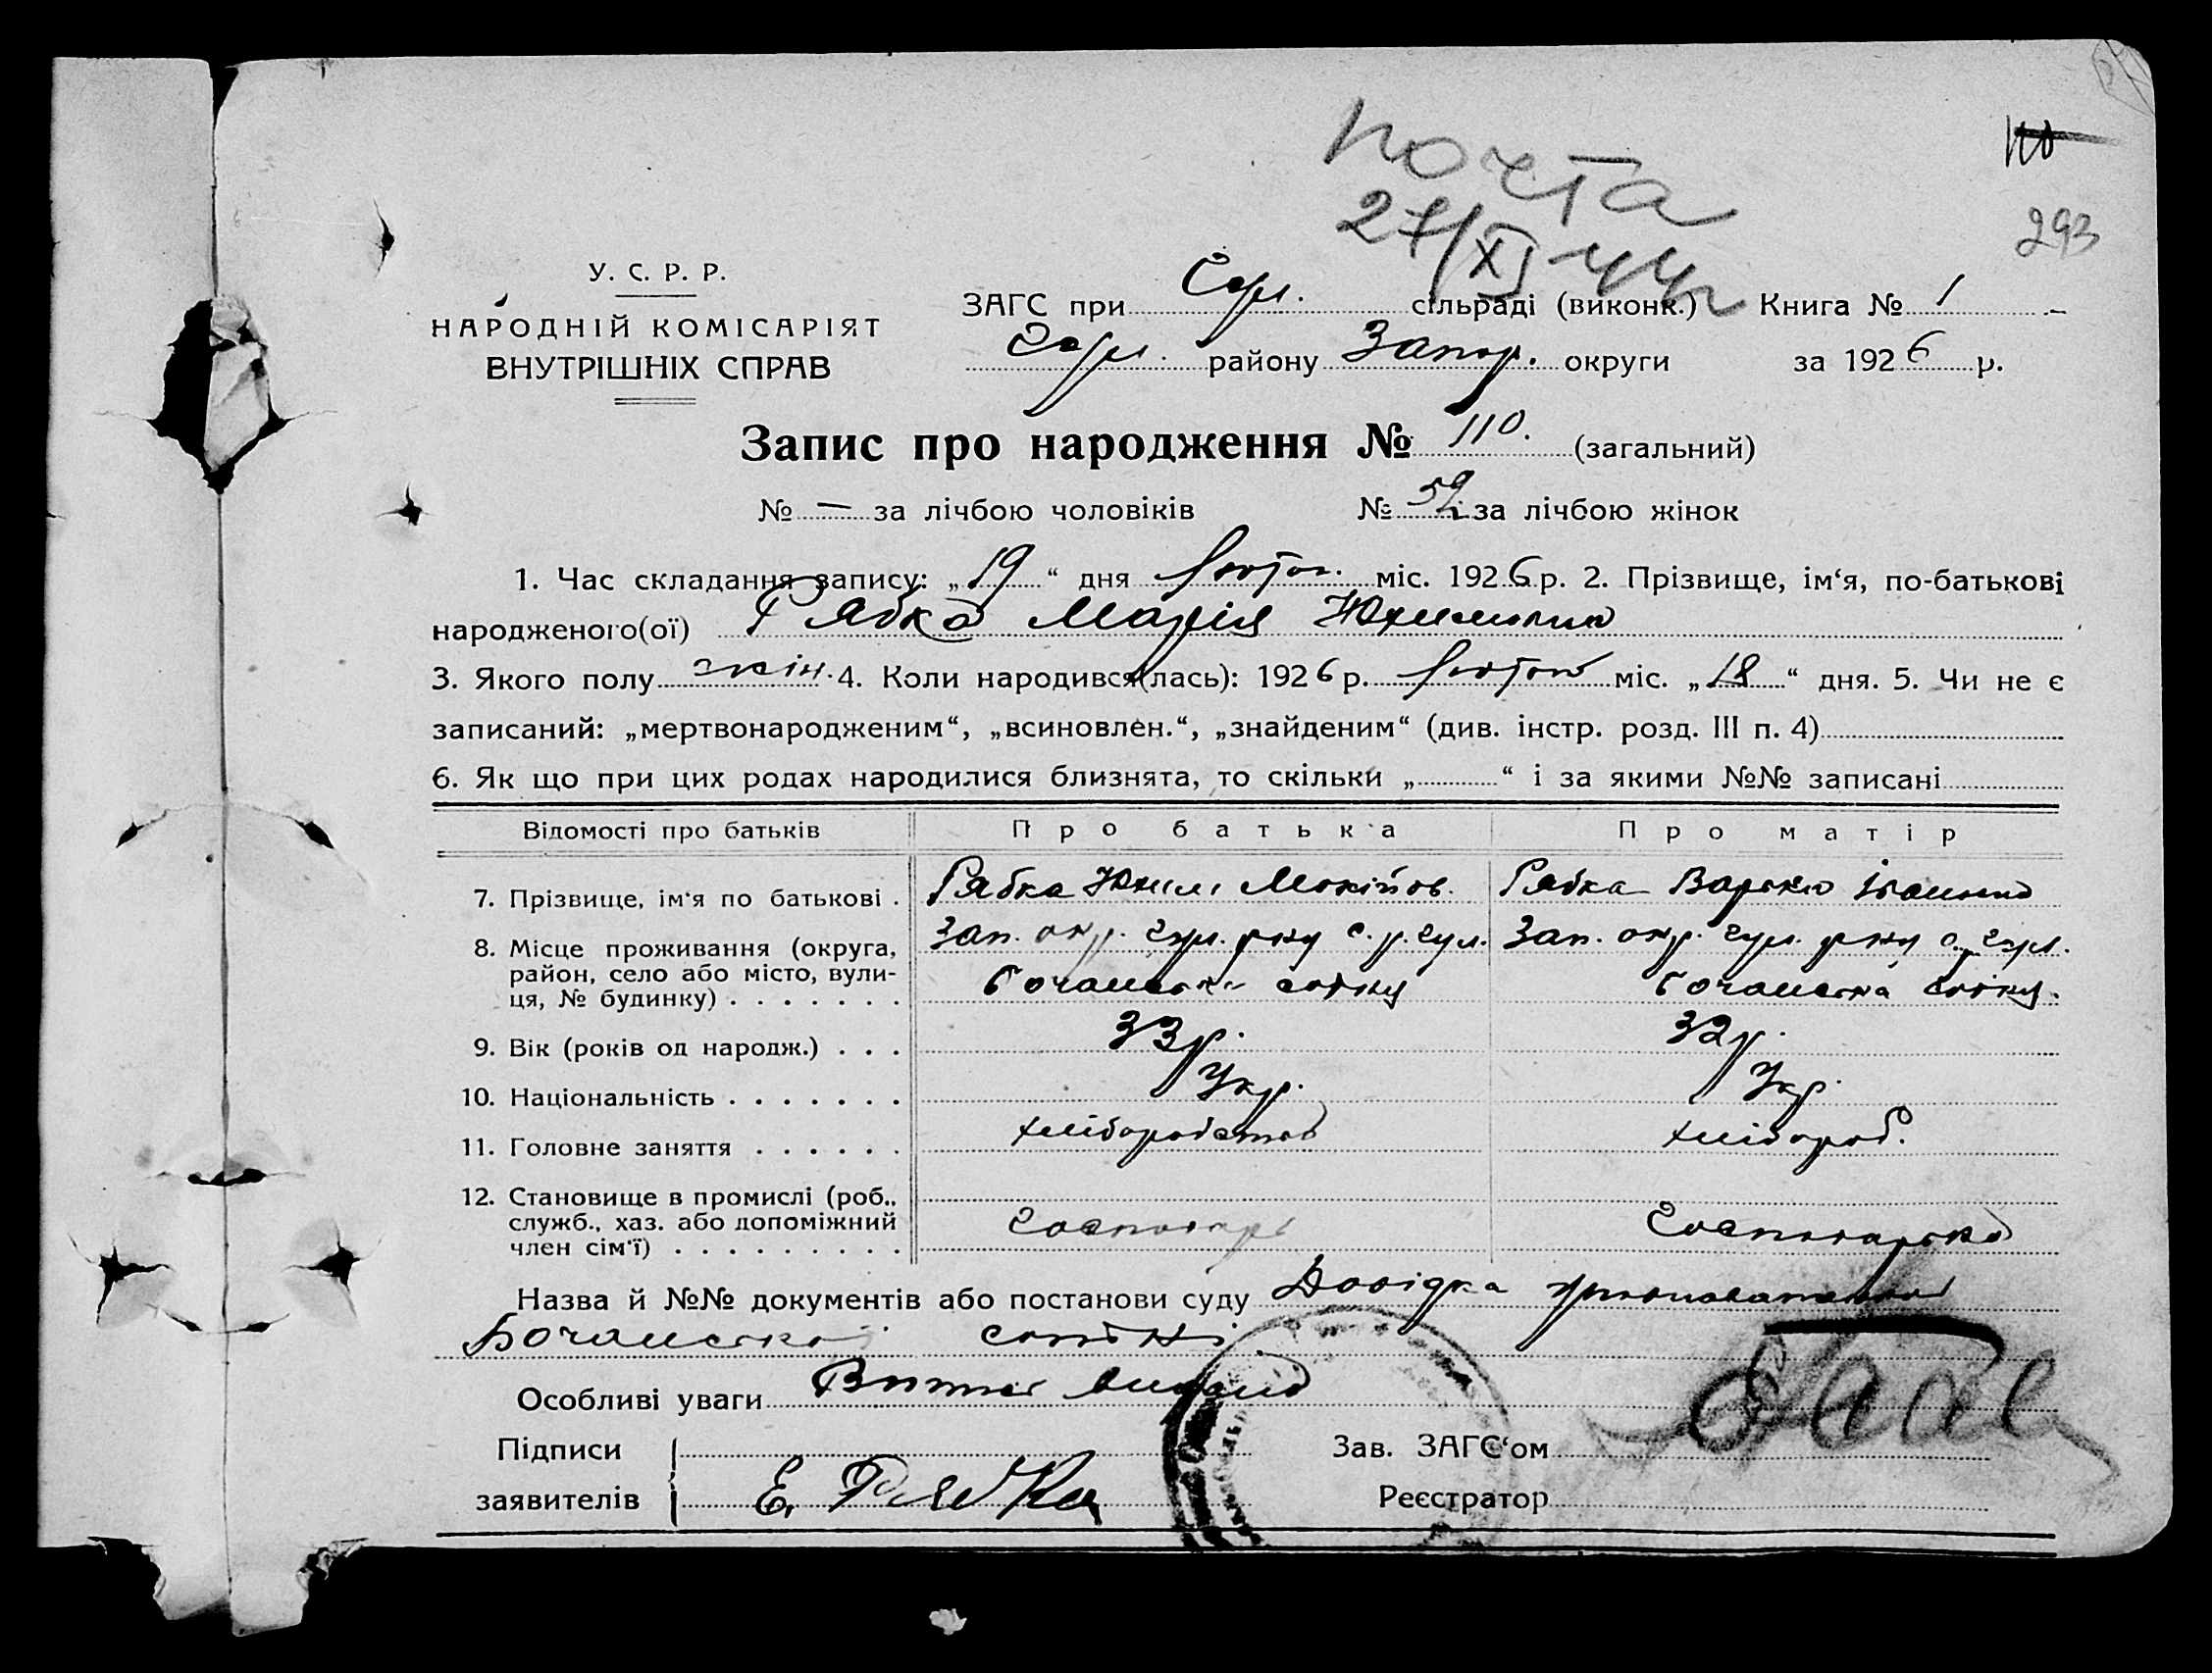 почта
27/XI 44г
110
293
У. С. Р. Р.
НАРОДНІЙ КОМІСАРІЯТ
ВНУТРІШНІХ СПРАВ
ЗАГС при Гул. сільраді (виконк.) Книга № 1
Гул. району Запор. округи за 1926 р.
Запис про народження № 110. (загальний)
№ — за лічбою чоловіків № 52 за лічбою жінок
1. Час складання запису: „19“ дня лютого міс. 1926 р. 2. Прізвище, ім‘я, по-батькові
народженого(ої) Рябка Марія Юхимівна
3. Якого полу жін. 4. Коли народився(лась): 1926 р. лютого міс. „18“ дня. 5. Чи не є
записаний: „мертвонародженим“, „всиновлен.“, „знайденим“ (див. інстр. розд. III п. 4)
6. Як що при цих родах народилися близнята, то скільки „ “ і за якими №№ записані
Відомості про батьків Про батька Про матір
7. Прізвище, ім‘я по батькові . Рябка Юхим Мокійов. Рябка Варька Івановна
8. Місце проживання (округа, Зап. окр. Гул. р-ну с. р. Гул. Зап. окр. Гул. р-ну с. Гул.
район, село або місто, вули-
ця, № будинку) . . . . . . . Бочанська сотня Бочанська сотня.
9. Вік (років од народж.) . . . 33 р. 32 р.
10. Національність . . . . . . . Укр. Укр.
11. Головне заняття . . . . . . хліборобство хлібороб.
12. Становище в промислі (роб.,
служб., хаз. або допоміжний Господарь Господарька
член сім‘ї) . . . . . . . . .
Назва й №№ документів або постанови суду Довідка
Бочанської сотні
Особливі уваги Витяг видано
Підписи Зав. ЗАГС‘ом
заявителів Е. Рябка Реєстратор